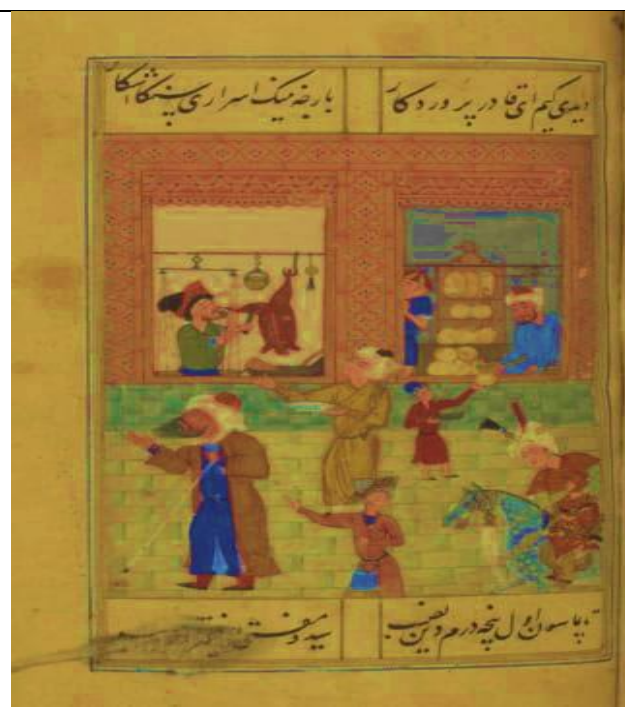 دیدی کیم ای قادر پروردکار
بارجه نینک اسراری سنکا آشکار
تاپماسون اول نیچه درم دین نصیب
سید و مفتی